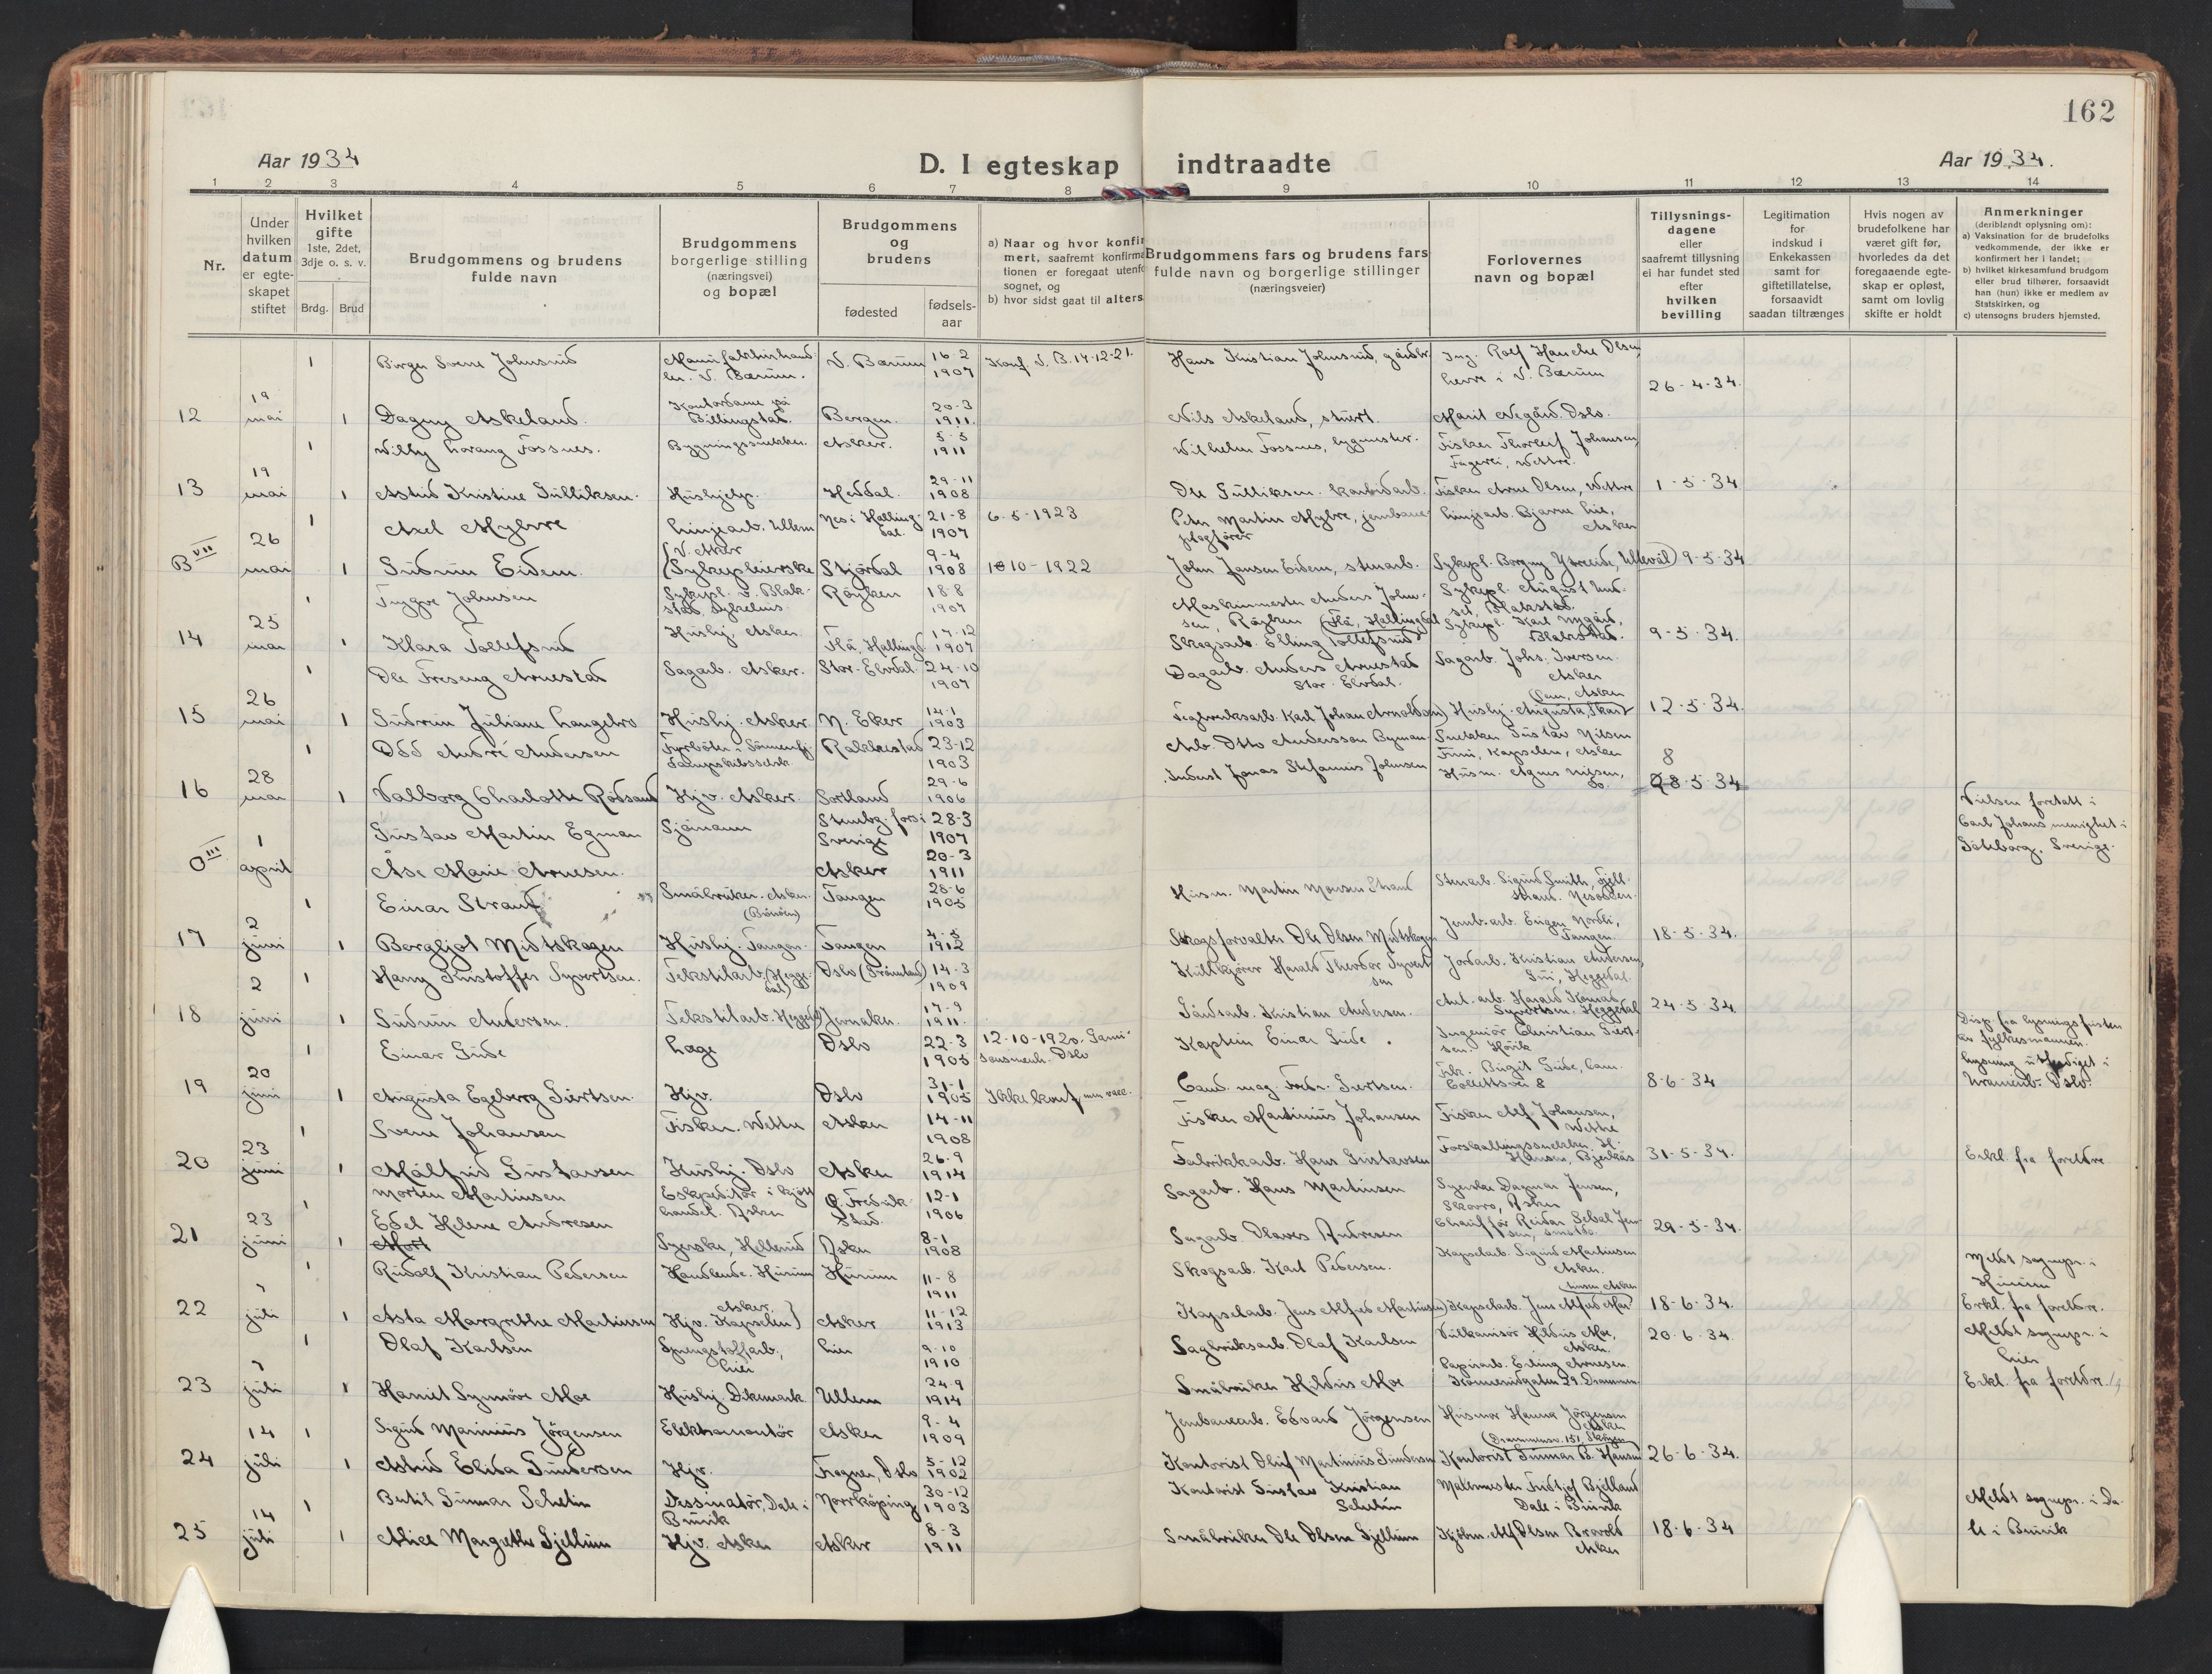 162
Aar 1934
D. I egteskap indtraadte
Aar 1934.
1 2 3 4 5 6 7 8 9 10 11 12 13 14
Nr.
Under hvilken datum er egte- skapet stiftet
Hvilket gifte 1ste, 2det, 3dje o. s. v.
Brdg. Brud
Brudgommens og brudens fulde navn
Brudgommens borgerlige stilling (næringsvei) og bopæl
Brudgommens og brudens
fødested
fødsels- aar
a) Naar og hvor konfir mert, saafremt konfirma tionen er foregaat utenfo sognet, og
b) hvor sidst gaat til alters
Brudgommens fars og brudens fars fulde navn og borgerlige stillinger (næringsveier)
Forlovernes navn og bopæl
Tillysnings- dagene eller saafremt tillysning ei har fundet sted efter hvilken bevilling
Legitimation for indskud i Enkekassen samt for giftetillatelse, forsaavidt saadan tiltrænges
Hvis nogen av brudefolkene har været gift før, hvorledes da det foregaaende egte- skap er opløst, samt om lovlig skifte er holdt
Anmerkninger (deriblandt oplysning om):
a) Vaksination for de brudefolks vedkommende, der ikke er konfirmert her i landet;
b) hvilket kirkesamfund brudgom eller brud tilhører, forsaavidt han (hun) ikke er medlem av Statskirken, og
c) utensogns bruders hjemsted.
1 Birger Sverre Johnsrud Manufakturhand- ler. V. Bærum. V. Bærum 16-2 1907 Konf. V. B. 14-12-21. Hans Kristian Johnsrud, gårdbr. Ing. Rolf Hauche Olsen, herr i V. Bærum
12 19 mai 1 Dagny Askeland. Kontordame på Billingstad. Bergen. 20-3 1911. Nils Askeland, stuert. Marit Negård. Oslo. 26-4-34.
1 Willy Lorang Fossnes. Bygningssnekker. Asker. 5-5 1911 Wilhelm Fossnes, byggmester. Fisker Thorleif Johansen, Fagerli, Wettre.
13 19 mai 1 Astrid Kristine Gulliksen. Hushjelp. Heddal. 29-11 1908 Ole Gulliksen. karbidarb. Fisker Arne Olsen, Wettre 1-5-34
1 Axel Myhre Linjearb. Ullern Nes i Halling- dal. 21-8 1907 6-5-1923 Peter Martin Myhre, jernbane- Linjearb. Bjarne Lie, Asker
B VII 26 mai 1 Gudrun Eidem. (V. Aker (Sykepleierske Stjørdal 9-4 1908 10-10-1922 John Jansen Eidem, stenarb. Sykepl. Borgny Ystreide, Ullevål) 9-5-34
1 Trygve Johnsen Sykepl. v. Blak- stad, Sykehus Røyken 18-8 1907 Maskinmester Anders John- sen, Røyken Sykepl. August Und- set, Blakstad.
14 25 mai 1 Klara Tollefsrud Hushj. Asker Flå, Hallingd. 17-12 1907 (Flå, Hallingdal Skogsarb. Elling Tollefsrud Sykepl. Karl Nygård, Blakstad. 9-5-34.
1 Ole Freseng Arnestad Sagarb. Asker. Stor-Elvdal. 24-10 1907 Dagarb. Anders Arnestad Stor-Elvdal. Sagarb. Johs. Iversen. Asker
15 26 mai 1 Gudrun Juliane Langebro Hushj. Asker N. Eker 14-1 1903 Teglverksarb. Karl Johan Arnoldsen) Hushj. Augusta Skar 12-5-34.
1 Odd André Andersen Fyrbøter i Sønnenfj. Dampskibsselsk. Rakkestad 23-12 1903 Arb. Otto Andersson Byman. Snekker Gustav Nilsen Furu, Kapselen, Asker
16 28 mai 1 Valborg Charlotte Rødsand Hjv. Asker. Sortland 29-6 1906 Inderst Jonas Stefanius Johnsen Husm. Agnes Nilsen, do. 8 28-5-34
Gustav Martin Egman Sjømann Sverige 28-3 1907 Vielsen foretatt i Carl Johans menighet i Göteborg. Sverige.
O III 1 april Åse Marie Arnesen. Asker 20-3 1911
1 Einar Strand Småbruker. Asker. (Brønøen) Tangen 28-6 1905 Husm. Martin Monsen Strand Stenarb. Sigurd Smith, Fjell- strand. Nesodden.
17 2 juni 1 Bergljot Midtskogen Hushj. Tangen. Tangen 4-5 1912 Skogsforvalter Ole Olsen Midtskogen Jernb.arb. Eugen Nordli, Tangen. 18-5-34.
1 Harry Kristoffer Syvertsen. Tekstilarb. (Hegge- dal) Oslo (Grønland) 14-3 1909 Kullkjører Harald Theodor Syvert- sen Jordarb. Kristian Andersen, Gui, Heggedal.
18 2 juni 1 Gudrun Andersen. Tekstilarb. Heggedal Jevnaker. 17-9 1911. Gårdsarb. Kristian Andersen. Anl. arb. Harald Konrad Syvertsen. Heggedal 24-5-34
1 Einar Gude Læge Oslo 22-3 1905 12-10-1920. Garni- sonsmenh. Oslo Kaptein Einar Gude. Ingeniør Christian Siert- sen. Høvik Disp. fra lysningsfristen av fylkesmannen.
19 20 juni 1 Augusta Egeberg Siertsen. Hjv. Oslo 31-1 1905 Ikke konf. men vacc. Cand. mag. Fredr. Siertsen. Frk. Birgit Gude, Cam. Collettsvei 8 8-6-34 Lysning utferdiget i Uranienb. Oslo.
1 Sverre Johansen Fisker. Wettre Asker 14-11 1908 Fisker Martinius Johansen Fisker Alf Johansen, Wettre
20 23 juni 1 Målfrid Gustavsen Hushj. Oslo Asker 26-9 1914 Fabrikkarb. Hans Gustavsen Forskallingssnekker H. Hansen, Bjerkås 31-5-34. Erkl. fra foreldre
1 Morten Martinsen Ekspeditør i kjøtt handel. Asker Fredrik- stad. 12-1 1906 Sagarb. Hans Martinsen Syerske Dagmar Jensen, Skovro, Asker
21 23 juni 1 Edel Helene Andresen Mort Syerske, Hellerud Asker 8-1 1908 Sagarb. Olaves Andresen Chauffør Reidar Sebal Jen- sen, 29-5-34.
1 Rudolf Kristian Pedersen Handlende. Hurum Hurum 11-8 1911 Skogsarb. Karl Pedersen. Kapselarb. Sigurd Martinsen Asker. Meldt sognepr. i Hurum
22 7 juli 1 Asta Margrethe Martinsen Asker. Hjv. Kapselen} Asker 11-12 1913 Kapselarb. Jens Alfred Martinsen) Kapselarb. Jens Alfred Mar- tinsen, Asker 18-6-34. Erkl. fra foreldr.
1 Olaf Karlsen Sprengstoffarb., Lier Lier 9-10 1910 Sagbruksarb. Olaf Karlsen Vulkanisør Hildus Moe, Asker. 20-6-34. Meldt sognepr. i Lier
23 7 juli 1 Harriet Synnøve Moe Hushj. Dikemark Ullern 24-9 1914 Småbruker Hildus Moe Papirarb. Erling Arnesen. 29. Drammen. Erkl. fra foreldr.
14 1 Sigurd Marinius Jørgensen Elektromontør Asker 9-4 1909 Jernbanearb. Edvard Jørgensen Husmor Hanna Jørgensen Asker
24 juli 1 Astrid Elida Gundersen Hjv. Frogner, Oslo 5-12 1902 Kontorist Oluf Martinius Gundersen (Drammensv. 151, Skøyen Kontorist Gunnar B. Hansen 26-6-34.
1 Bertil Gunnar Schelin Dessinatør, Dale i Bruvik Norrköping 30-12 1903 Kontorist Gustav Kristian Schelin Malermester Fridtjof Bjelland Dale i Bruvik Meldt sognepr. i Da-
25 14 juli 1 Alice Margrethe Gjellum Hjv. Asker Asker 8-3 1911 Småbruker Ole Olsen Gjellum Kjøbm. Alf Olsen Bravold Asker 18-6-34 le i Bruvik